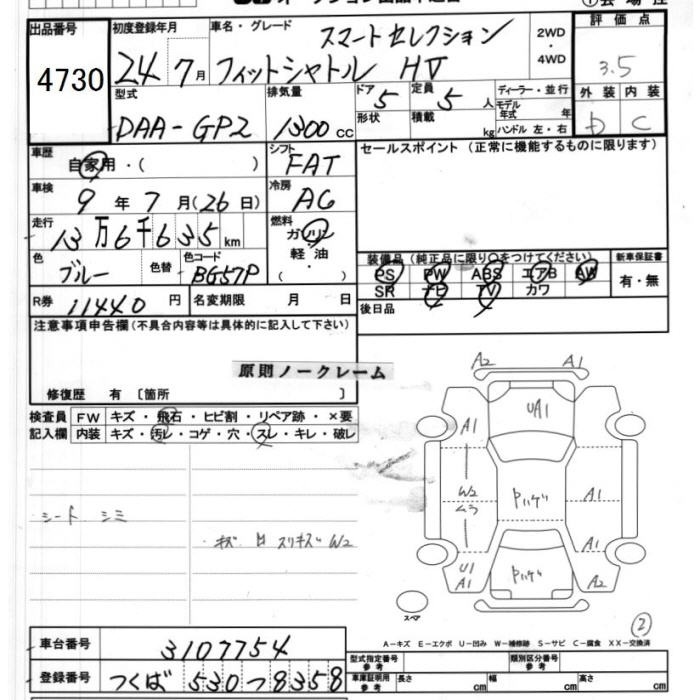 出品番号 初度登録年月 車名・グレード スマートセレクション 2WD・4WD 評価点
4730 24年7月 フィットシャトル HV 3.5
型式 排気量 ドア 5 定員 5人 ディーラー・並行 外装 内装
DAA-GP2 1300cc 形状 積載 kg モデル年式 年 ハンドル 左・右 D C
車歴 自家用・( ) シフト FAT セールスポイント (正常に機能するものに限ります)
車検 9年7月(26日) 冷房 AC
走行 13万6千635km 燃料 ガソリン 軽油・( )
色 ブルー 色替 色コード BG57P
装備品(純正品に限り○をつけてください) 新車保証書
PS PW ABS エアB AW 有・無
SR ナビ TV カワ
R券 11440円 名変期限 月 日 後日品
注意事項申告欄(不具合内容等は具体的に記入して下さい)
原則ノークレーム
修復歴 有 [箇所 ]
検査員 FW キズ・飛石・ヒビ割・リペア跡・×要
記入欄 内装 キズ・汚レ・コゲ・穴・スレ・キレ・破レ
シート シミ
A2 A1
UA1
A1
W2
ムラ
A1
A1
U1
A1
A2
スペア
2
A－キズ E－エクボ U－凹み W－補修跡 S－サビ C－腐食 XX－交換済
車台番号 3107754 型式指定番号 参考 類別区分番号 参考
登録番号 つくば 530 つ 8358 車庫証明用 参考 長さ cm 幅 cm 高さ cm